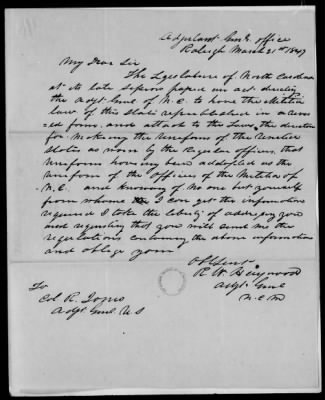 Adjutant Genl's office
Raleigh March 21st 1849
My Dear Sir
The Legislature of North Carolina
at its late Session passed an act directing
the Adjt Genl of N.C. to have the Militia
laws of this State republished in a
form, and attach to the Laws, the directions
for making the Uniform of the United
States as worn by the Regular officers, that
Uniform having been adopted as the
uniform of the officers of the Militia of
N.C. and knowing of no one but yourself
from whome I can get the information
required I take the liberty of addressing you
and requesting that you will send me the
regulations containing the above information
and oblige yours
Obt Servt
R W Haywood
Adjt Genl
N.C.M
To
Col R. Jones
Adjt Genl U S